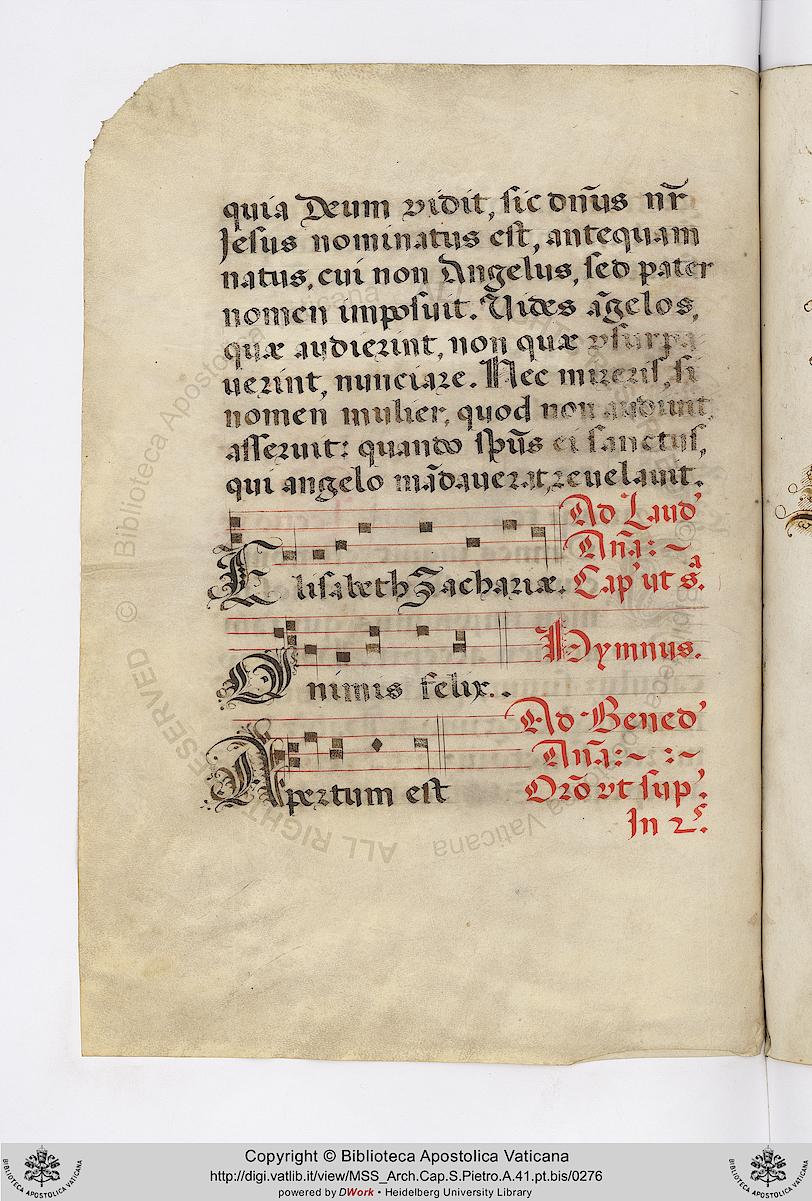 quia Deum vidit, sic dn̄us nr̄
Jesus nominatus est, antequam
natus, cui non Angelus, sed pater
nomen imposuit. Vides āgelos,
quæ audierint, non quæ vsurpa
uerint, nunciare. Nec mireris, si
nomen mulier, quod non audiuit,
asseruit: quando sp̄us ei sanctus,
qui angelo mādauerat, reuelauit.
Ad Laud'
Añā: ~
Elisabeth Zachariæ. Cap' ut s.ᵃ
Hymnus.
O nimis felix..
Ad Bened'
Añā: ~ : ~
Apertum est Orō vt sup'.
In 2.
Copyright © Biblioteca Apostolica Vaticana
http://digi.vatlib.it/view/MSS_Arch.Cap.S.Pietro.A.41.pt.bis/0276
powered by DWork • Heidelberg University Library
BIBLIOTECA APOSTOLICA VATICANA
BIBLIOTECA APOSTOLICA VATICANA
© Biblioteca Apostolica Vaticana
ALL RIGHTS RESERVED